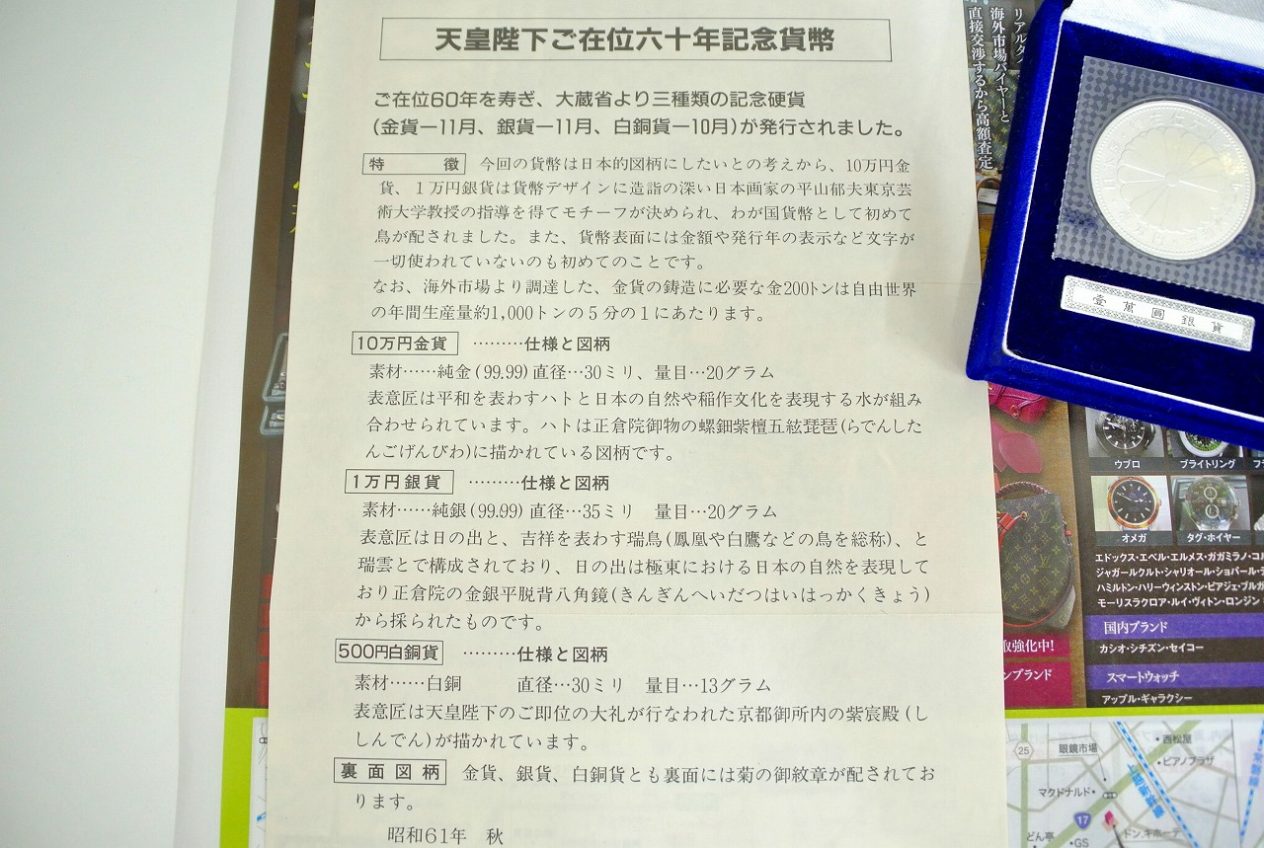 天皇陛下ご在位六十年記念貨幣
ご在位60年を寿ぎ、大蔵省より三種類の記念硬貨
(金貨ー11月、銀貨ー11月、白銅貨ー10月)が発行されました。
特 徴 今回の貨幣は日本的図柄にしたいとの考えから、10万円金
貨、1万円銀貨は貨幣デザインに造詣の深い日本画家の平山郁夫東京芸
術大学教授の指導を得てモチーフが決められ、わが国貨幣として初めて
鳥が配されました。また、貨幣表面には金額や発行年の表示など文字が
一切使われていないのも初めてのことです。
なお、海外市場より調達した、金貨の鋳造に必要な金200トンは自由世界
の年間生産量約1,000トンの5分の1にあたります。
10万円金貨 ………仕様と図柄
素材……純金(99.99)直径…30ミリ、量目…20グラム
表意匠は平和を表わすハトと日本の自然や稲作文化を表現する水が組み
合わせられています。ハトは正倉院御物の螺鈿紫檀五絃琵琶(らでんした
んごげんびわ)に描かれている図柄です。
1万円銀貨 ………仕様と図柄
素材……純銀(99.99)直径…35ミリ 量目…20グラム
表意匠は日の出と、吉祥を表わす瑞鳥(鳳凰や白鷹などの鳥を総称)、と
瑞雲とで構成されており、日の出は極東における日本の自然を表現して
おり正倉院の金銀平脱背八角鏡(きんぎんへいだつはいはっかくきょう)
から採られたものです。
500円白銅貨 ………仕様と図柄
素材……白銅 直径…30ミリ 量目…13グラム
表意匠は天皇陛下のご即位の大礼が行なわれた京都御所内の紫宸殿(し
しんでん)が描かれています。
裏面図柄 金貨、銀貨、白銅貨とも裏面には菊の御紋章が配されてお
ります。
昭和61年 秋
リアルタ
海外市場バイヤーと
直接交渉するから高額査定
壹萬圓銀貨
ウブロ
ブライトリング
オメガ
タグ・ホイヤー
エドックス・エベル・エルメス・ガガミラノ・コル
ジャガールクルト・シャリオール・ショパール・
ハミルトン・ハリーウィンストン・ピアジェ・ブルガ
モーリスラクロア・ルイ・ヴィトン・ロンジン
国内ブランド
カシオ・シチズン・セイコー
スマートウォッチ
アップル・ギャラクシー
取強化中!
ンブランド
25
眼鏡市場
西松屋
ピアノプラザ
マクドナルド
17
どん亭
GS
ドン・キホーテ